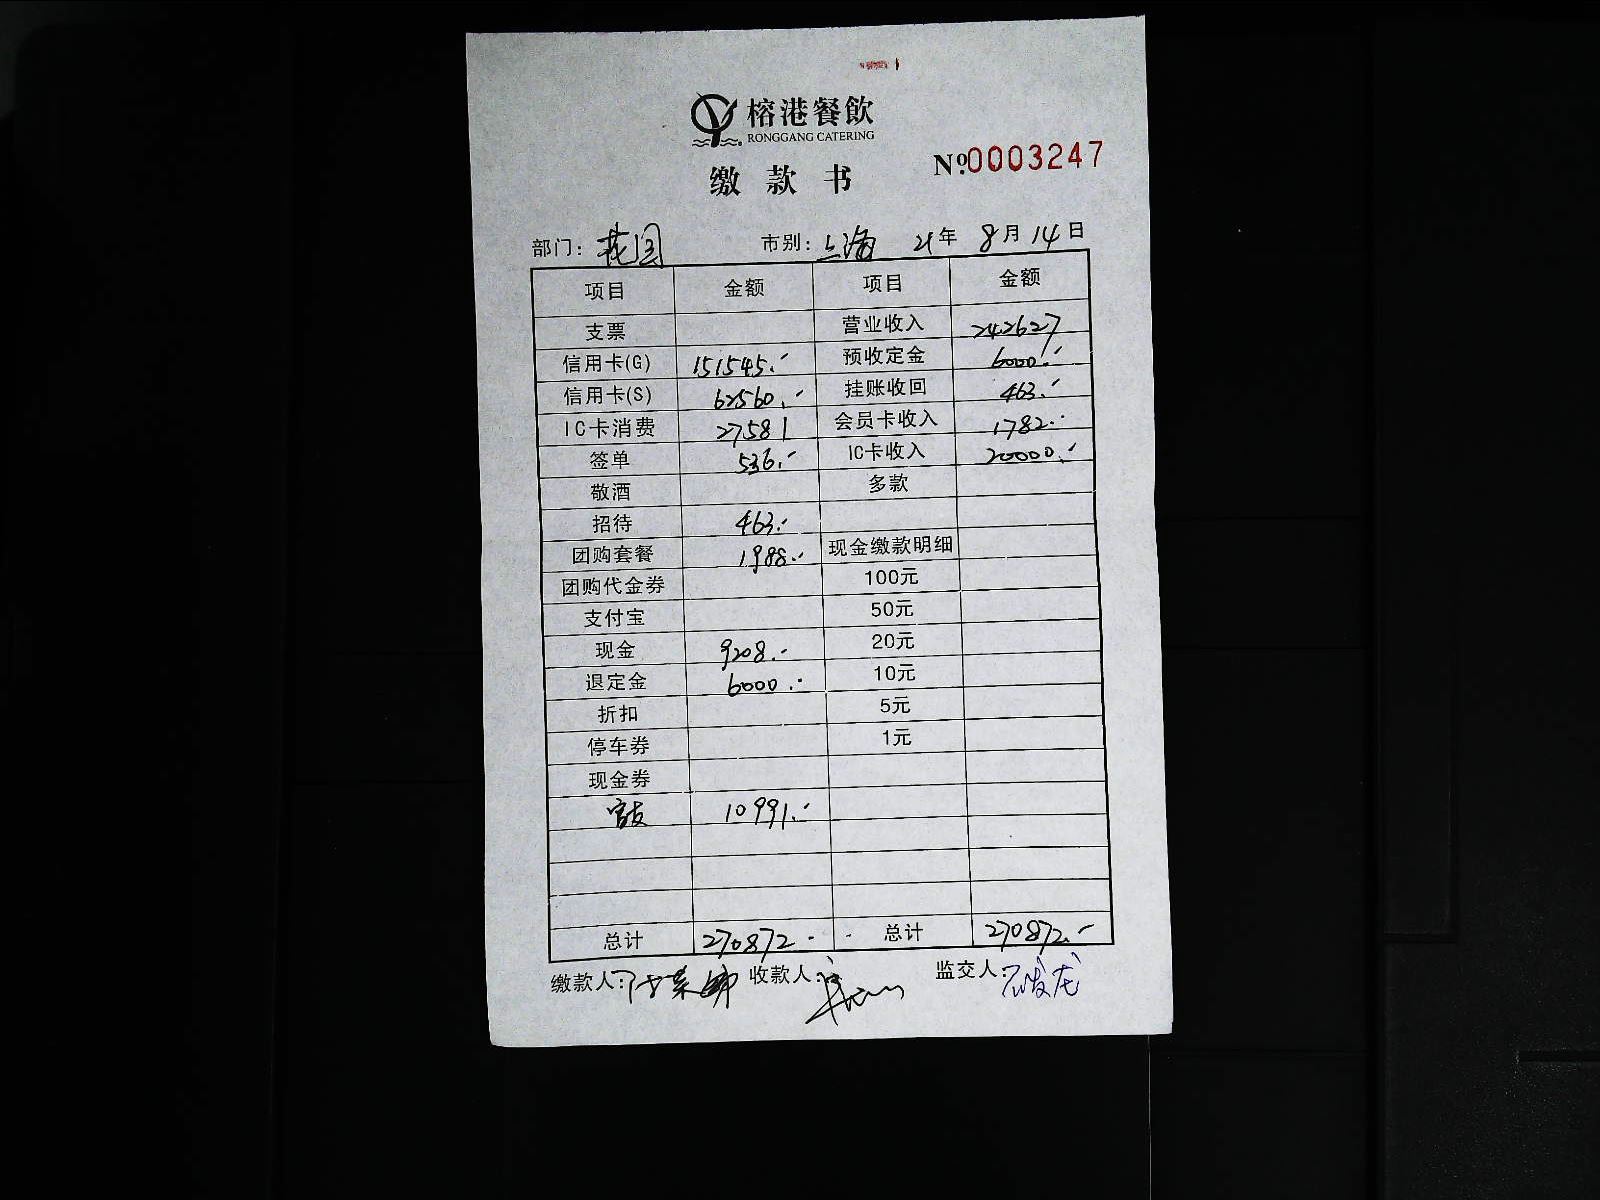 榕港餐飲
RONGGANG CATERING
№0003247
缴款书
部门: 花园 市别: 上海 21年 8月 14日
项目 金额 项目 金额
支票 营业收入 242627
信用卡(G) 151545.- 预收定金 6000.-
信用卡(S) 62560.- 挂账收回 463.-
IC卡消费 27581 会员卡收入 1782.-
签单 536.- IC卡收入 20000.-
敬酒 多款
招待 463.-
团购套餐 1988.- 现金缴款明细
团购代金券 100元
支付宝 50元
现金 9208.- 20元
退定金 6000.- 10元
折扣 5元
停车券 1元
现金券
10991.-
总计 270872.- 总计 270872.-
缴款人: 收款人: 监交人: